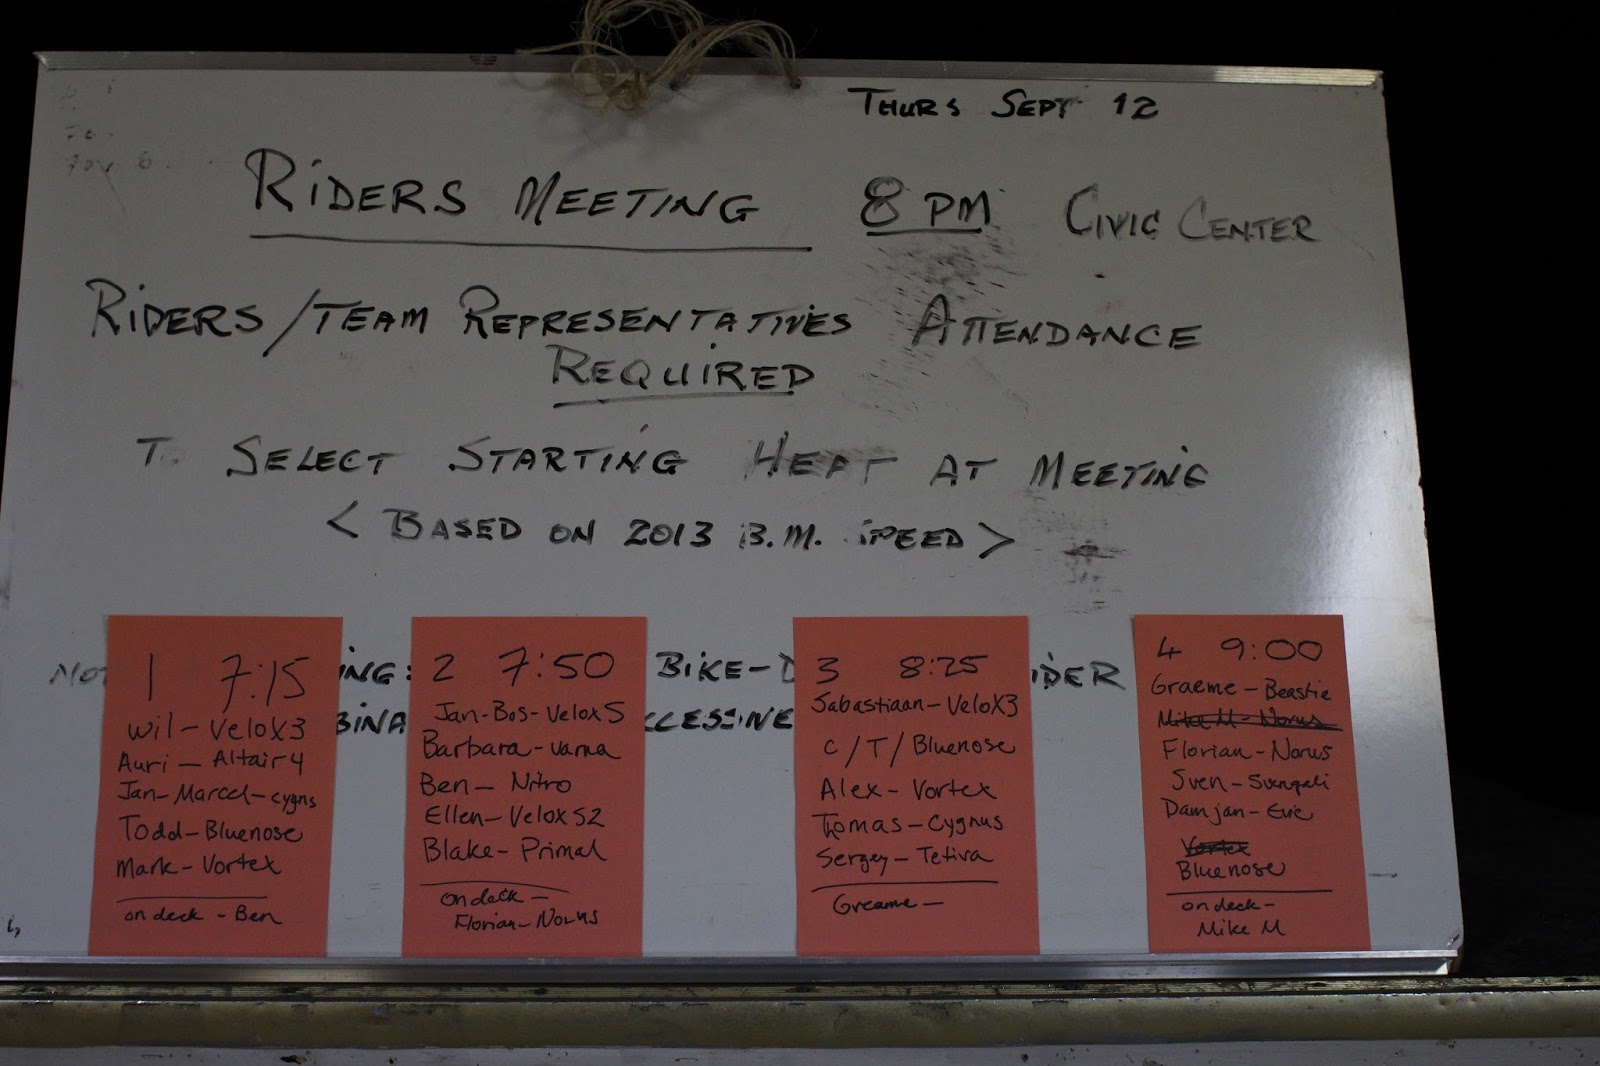 THURS SEPT 12
RIDERS MEETING 8 PM CIVIC CENTER
RIDERS/TEAM REPRESENTATIVES ATTENDANCE
REQUIRED
TO SELECT STARTING HEAT AT MEETING
< BASED ON 2013 B.M. SPEED >
BIKE-
1 7:15
Wil - VeloX3
Auri - Altair 4
Jan-Marcel - cygns
Todd - Bluenose
Mark - Vortex
on deck - Ben
2 7:50
Jan-Bos - Velox S
Barbara - varna
Ben - Nitro
Ellen - Velox S2
Blake - Primal
on deck -
Florian - Norus
3 8:25
Sabastiaan - VeloX3
C/T/Bluenose
Alex - Vortex
Thomas - Cygnus
Sergey - Tetiva
Greame -
4 9:00
Graeme - Beastie
Mike M - Norus
Florian - Norus
Sven - Svengali
Damjan - Eive
Vortex
Bluenose
on deck -
Mike M